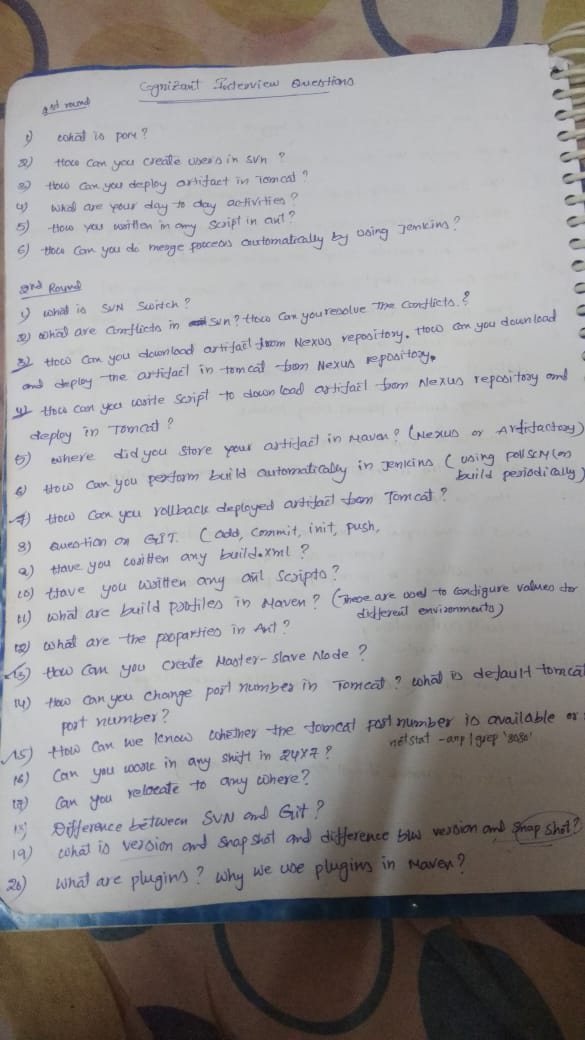 Cognizant Interview Questions
1st round
1) what is pom?
2) How can you create users in svn ?
3) How can you deploy artifact in Tomcat ?
4) what are your day to day activities ?
5) How you written in any script in ant?
6) How can you do merge process automatically by using Jenkins ?
2nd Round
1) what is SVN Switch ?
2) what are conflicts in svn ? How can you resolve the conflicts. ?
3) How can you download artifact from Nexus repository. How can you download
and deploy the artifact in tomcat from Nexus repository.
4) How can you write script to download artifact from Nexus repository and
deploy in Tomcat ?
5) where did you store your artifact in Maven ? (Nexus or Artifactory)
6) How can you perform build automatically in Jenkins ( using poll SCM (on
build periodically)
7) How can you rollback deployed artifact from Tomcat ?
8) Question on GIT. ( add, commit, init, push,
9) Have you written any build.xml ?
10) Have you written any ant scripts ?
11) what are build profiles in Maven ? (These are used to configure values for
different environments)
12) what are the properties in Ant ?
13) How can you create Master-slave Node ?
14) How can you change port number in Tomcat ? what is default tomcat
port number ?
15) How can we know whether the tomcat port number is available or
netstat -anp | grep '8080'
16) Can you work in any shift in 24x7 ?
17) Can you relocate to any where?
18) Difference between SVN and Git ?
19) what is version and snap shot and difference b/w version and snap shot ?
20) what are plugins ? why we use plugins in Maven ?